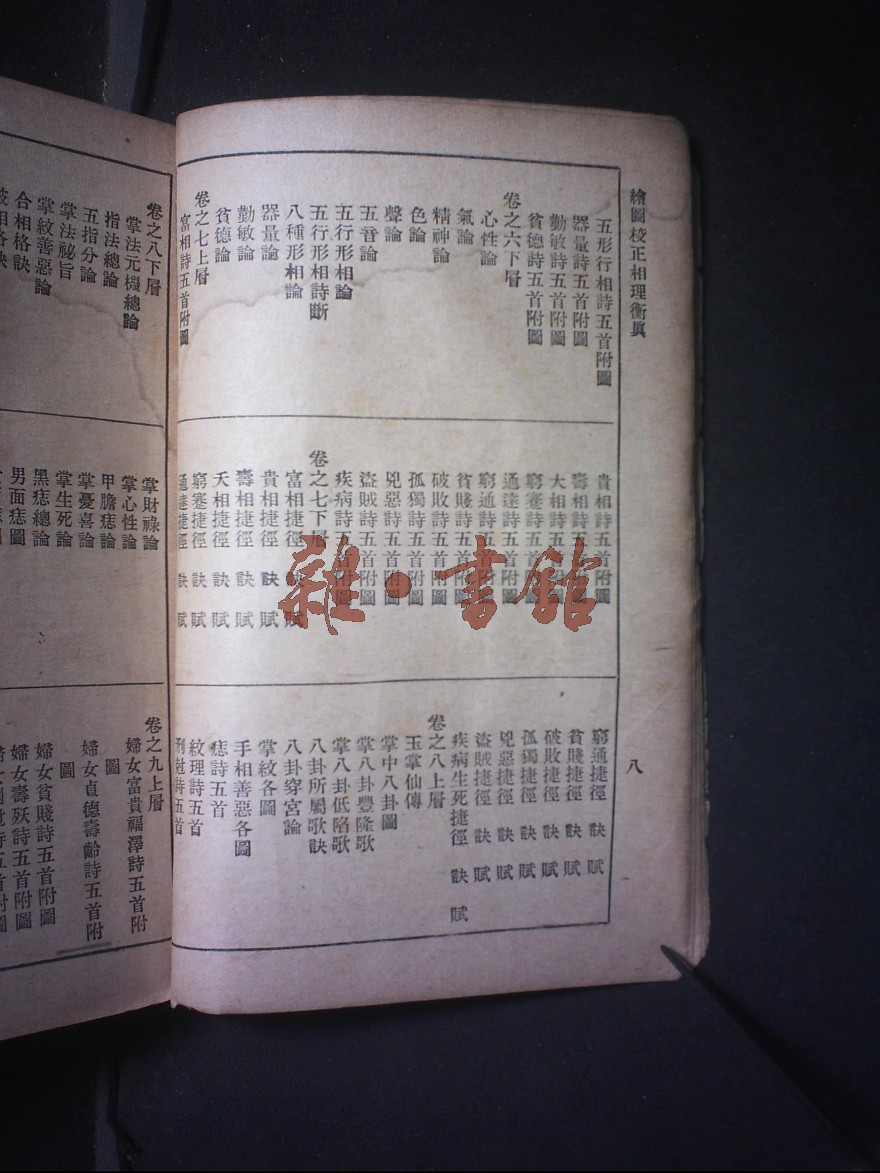 繪圖校正相理衡眞
五形行相詩五首附圖
器量詩五首附圖
勤敏詩五首附圖
貧德詩五首附圖
卷之六下層
心性論
氣論
精神論
色論
聲論
五音論
五行形相論
五行形相詩斷
八種形相論
器量論
勤敏論
貧德論
卷之七上層
富相詩五首附圖
貴相詩五首附圖
壽相詩五首附圖
夭相詩五首附圖
窮蹇詩五首附圖
通達詩五首附圖
窮通詩五首附圖
貧賤詩五首附圖
破敗詩五首附圖
孤獨詩五首附圖
兇惡詩五首附圖
盜賊詩五首附圖
疾病詩五首附圖
卷之七下層
富相捷徑 訣 賦
貴相捷徑 訣 賦
壽相捷徑 訣 賦
夭相捷徑 訣 賦
窮蹇捷徑 訣 賦
通達捷徑 訣 賦
窮通捷徑 訣 賦
貧賤捷徑 訣 賦
破敗捷徑 訣 賦
孤獨捷徑 訣 賦
兇惡捷徑 訣 賦
盜賊捷徑 訣 賦
疾病生死捷徑 訣 賦
卷之八上層
玉掌仙傳
掌中八卦圖
掌八卦豐隆歌
掌八卦低陷歌
八卦所屬歌訣
八卦穿宮論
掌紋各圖
手相善惡各圖
痣詩五首
紋理詩五首
刑尅詩五首
八
卷之八下層
掌法元機總論
指法總論
五指分論
掌法祕旨
掌紋善惡論
合相格訣
掌財祿論
掌心性論
甲膽痣論
掌憂喜論
掌生死論
黑痣總論
男面痣圖
卷之九上層
婦女富貴福澤詩五首附
圖
婦女貞德壽齡詩五首附
圖
婦女貧賤詩五首附圖
婦女壽殀詩五首附圖
雜·書館